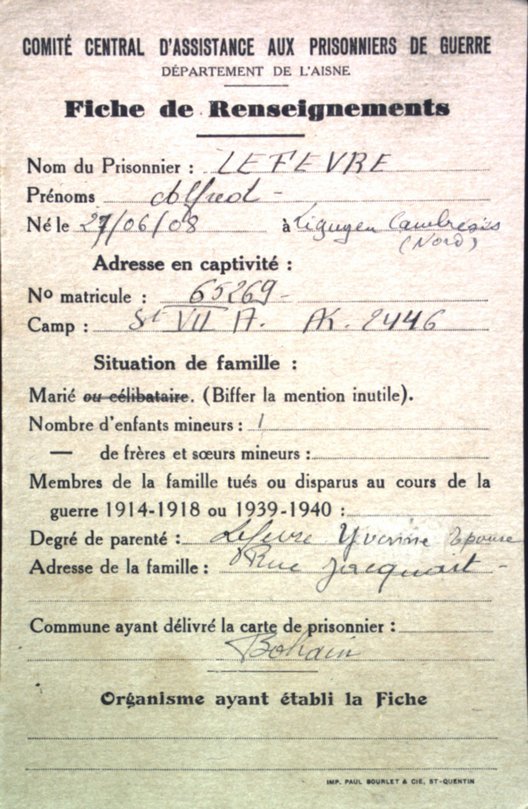 COMITÉ CENTRAL D'ASSISTANCE AUX PRISONNIERS DE GUERRE
DÉPARTEMENT DE L'AISNE
Fiche de Renseignements
Nom du Prisonnier : LEFEVRE
Prénoms Alfred -
Né le 27/06/08 à Cambresis
(Nord)
Adresse en captivité :
No matricule : 65269-
Camp : St VII A. AK. 2446
Situation de famille :
Marié ou célibataire. (Biffer la mention inutile).
Nombre d'enfants mineurs : 1
— de frères et sœurs mineurs :
Membres de la famille tués ou disparus au cours de la
guerre 1914-1918 ou 1939-1940 :
Degré de parenté : Lefevre Yvonne Epouse
Adresse de la famille : Rue Jacquart -
Commune ayant délivré la carte de prisonnier :
Bohain
Organisme ayant établi la Fiche
IMP. PAUL BOURLET & CIE, ST-QUENTIN